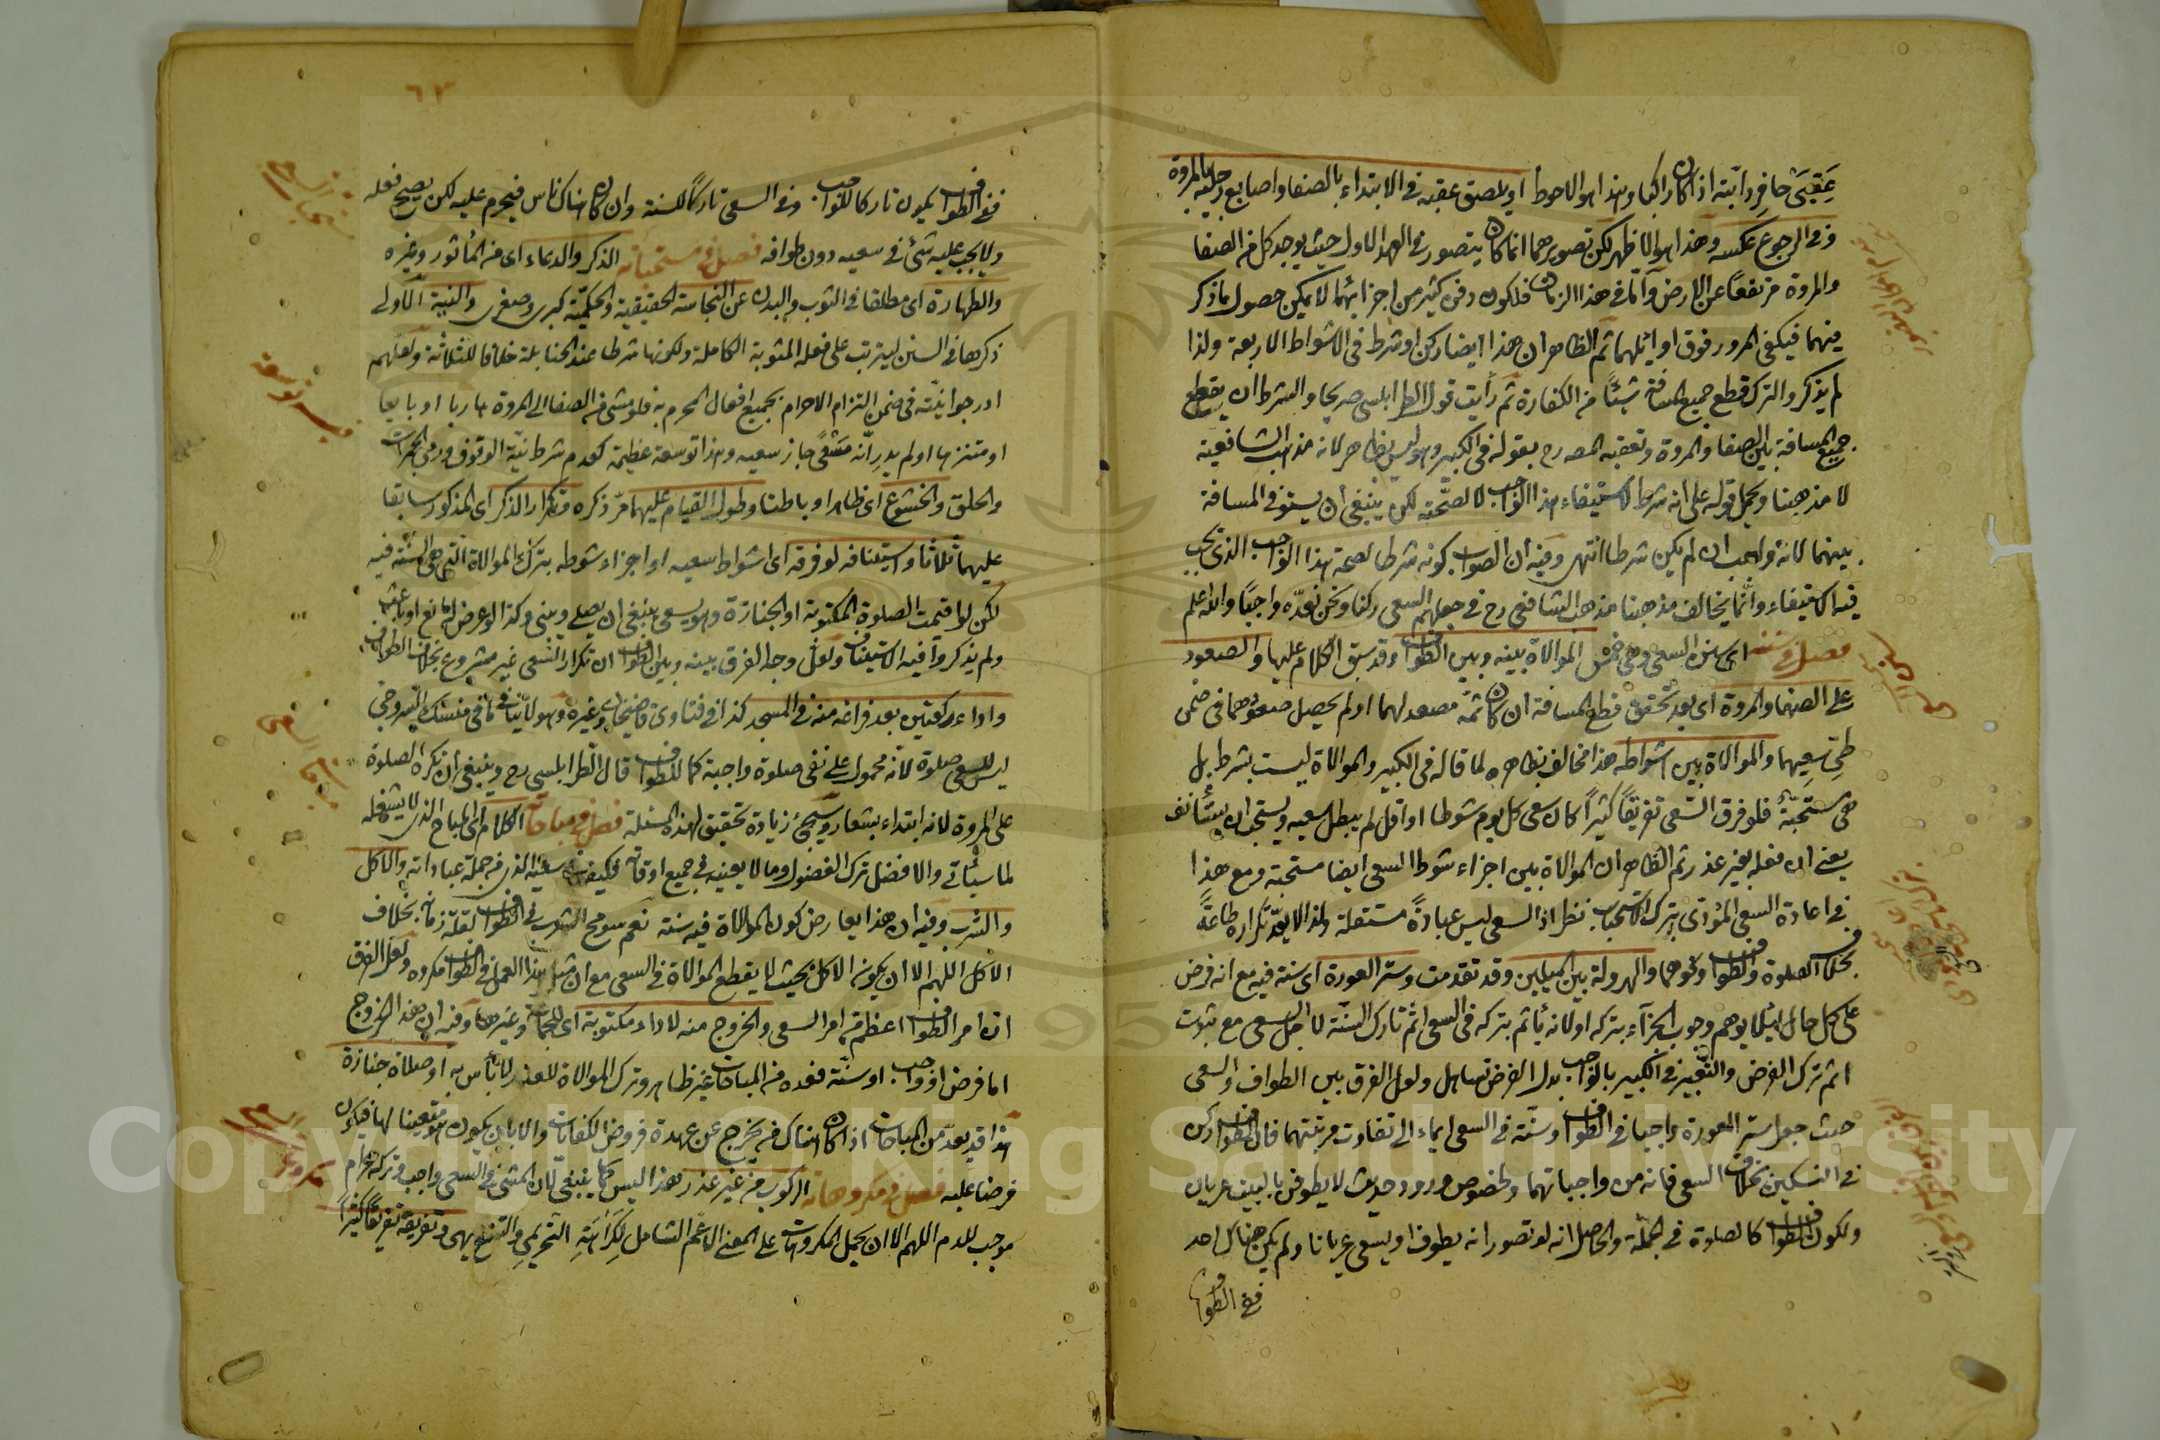 عَقِبَى حافر دابته اذا كان راكبا وهذا هو الاحوط او يلصق عقبه في الابتداء بالصفا واصابع رجليه بالمروة
وفي الرجوع عكسه وهذا هو الاظهر لكن تصويرهما انما كان يتصور في العهد الاول حيث يوجد كل من الصفا
والمروة مرتفعًا عن الارض وأما في هذا الزمان فلكون دفن كثير من اجزائهما لا يمكن حصول ما ذكر
فيهما فيكفي المرور فوق اوائلهما ثم الظاهر ان هذا ايضا ركن او شرط في الاشواط الاربعة ولذا
لم يذكر والترك قطع جميع المسافة شيئًا من الكفارة ثم رأيت قول الطرابلسي صريحا والشرط ان يقطع
جميع المسافة بين الصفا والمروة وتعقبه المصه رح بقوله في الكبير وهو ليس بظاهر لانه مذهب الشافعية
لا مذهبنا ويحمل قوله على انه شرط لاستيفاء هذا الواجب لا لصحته لكن ينبغي ان يستوفي المسافة
بينهما لانه واجب ان لم يكن شرطا انتهى وفيه ان الصواب كونه شرطا لصحة هذا الواجب الذي يجب
فيه الاستيفاء وانما يخالف مذهبنا مذهب الشافعي رح في جعلهم السعي ركنا ونحن نعدّه واجبًا والله اعلم
فصل في سننه اي سنن السعي وهي خمس الموالاة بينه وبين الطواف وقد سبق الكلام عليها والصعود
على الصفا والمروة اي بعد تحقق قطع المسافة ان كان ثمّه مصعد لهما او لم يحصل صعودهما في ضمن
طيّ سعيهما والموالاة بين اشواطه هذا مخالف بظاهره لما قاله في الكبير والموالاة ليست بشرط بل
هي مستحبة فلو فرق السعي تفريقًا كثيرًا كان سعى كل يوم شوطا او اقل لم يبطل سعيه ويستحب ان يستأنف
يعني ان فعله بغير عذر ثم الظاهر ان الموالاة بين اجزاء شوط السعي ايضا مستحبة ومع هذا
في اعادة السعي المؤدى بترك الاستحباب نظر اذ السعي ليس عبادةً مستقلة ولذا لا يعد تكراره طاعةً
بخلاف الصلوة والطواف ونحوهما والهرولة بين الميلين وقد تقدمت وستر العورة اي سنة فيه مع انه فرض
على كل حال لئلا يوهم وجوب الجزاء بتركه او لانه يأثم بتركه في السعي اثم تارك السنة لاجل السعي مع ثبوت
اثم ترك الفرض والتعبير في الكبير بالواجب بدل الفرض تساهل ولعل الفرق بين الطواف والسعي
حيث جعل ستر العورة واجبا في الطواف وسنّة في السعي ايماء الى تفاوت مرتبتهما فان الطواف ركن
في النسكين بخلاف السعي فانه من واجباتهما ولخصوص ورود حديث لا يطوفن بالبيت عريان
ولكون الطواف كالصلوة في الجملة والحاصل انه لو تصور انه يطوف او يسعى عريانا ولم يكن هناك احد
ففي الطواف
٦٣
ففي الطواف يكون تاركا للواجب وفي السعي تاركًا للسنة وان كان هناك ناس فيحرم عليه لكن يصح فعله
ولا يجب عليه شئ في سعيه دون طوافه فصل في مستحباته الذكر والدعاء اي من المأثور وغيره
والطهارة اي مطلقا في الثوب والبدن عن النجاسة الحقيقية والحكميّة كبرى وصغرى والنية الاولى
ذكرها في السنن ليترتب على فعله المثوبة الكاملة ولكونها شرطا عند الحنابلة خلافا للثلاثة ولعلهم
ادرجوا نيّته في ضمن التزام الاحرام بجميع افعال المحرم به فلو مشى من الصفا الى المروة هاربا او بايعا
او متنزها او لم يدر انّه مَسْعًى جاز سعيه وهذا توسعة عظيمة كعدم شرط نيّة الوقوف ورمي الجمرات
والحلق والخشوع اي ظاهرا وباطنا وطول القيام عليهما مرّ ذكره وتكرار الذكر اي المذكور سابقا
عليهما ثلاثا واستينافه لو فرقه اي اشواط سعيه او اجزاء شوطه بترك الموالاة التي هي السنّة فيه
لكن لو اقيمت الصلوة المكتوبة او الجنازة وهو يسعى ينبغي ان يصلي ويبني وكذا لو عرض له مانع او باعث
ولم يذكروا فيه الاستيناف ولعل وجه الفرق بينه وبين الطواف ان تكرار السعي غير مشروع بخلاف الطواف
واداء ركعتين بعد فراغه منه في المسجد كذا في فتاوى قاضيخان وغيره وهو لا ينافي ما في منسك السروجي
ليس للسعي صلوة لانه محمول على نفي صلوة واجبة كما للطواف قال الطرابلسي رح وينبغي ان تكره الصلوة
على المروة لانه ابتداء بشعار وسيجئ زيادة تحقيق لهذه المسئلة فصل في مباحاته الكلام اي المباح الذي لا يشغله
لما سيأتي والافضل ترك الفضول وما لا يعنيه في جميع اوقاته فكيف سعيه الذي من جملة عباداته والاكل
والشرب وفيه ان هذا يعارض كون الموالاة فيه سنة نعم سومح الشرب في الطواف لقلّة زمانه بخلاف
الاكل اللهم الا ان يكون الاكل بحيث لا يقطع الموالاة في السعي مع ان مثل هذا العمل في الطواف مكروه ولعل الفرق
ان امر الطواف اعظم من امر السعي والخروج منه لاداء مكتوبة اي للجماعة وغيرها وفيه ان هذا الخروج
اما فرض او واجب او سنّة فعده من المباحات غير ظاهر وترك الموالاة للعذر لا بأس به او صلاة جنازة
هذا قد يعدّ من المباحات اذا كان هناك من يخرج عن عهدة فروض الكفايات والا بان يكون هو متعينا لها فيكون
فرضا عليه فصل في مكروهاته الركوب من غير عذر هذا ليس كما ينبغي لأن المشي في السعي واجب وتركه حرام
موجب للدم اللهم الا ان يحمل المكروهات على المعنى الاعم الشامل لكراهة التحريمي والتنزيهي وتفريقه تفريقًا كثيرًا